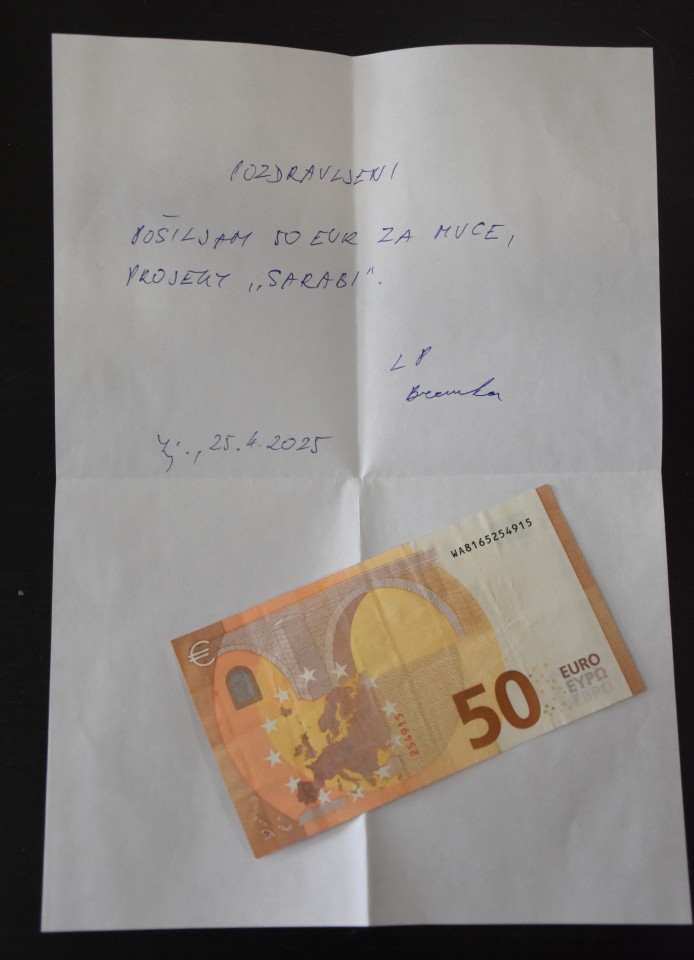 POZDRAVLJENI
POŠILJAM 50 EUR ZA MUCE,
PROJEKT „SARABI“.
LP
Branka
Lj., 25.4.2025
WA8165254915
€
254915
50
EURO
ΕΥΡΩ
ЕВРО